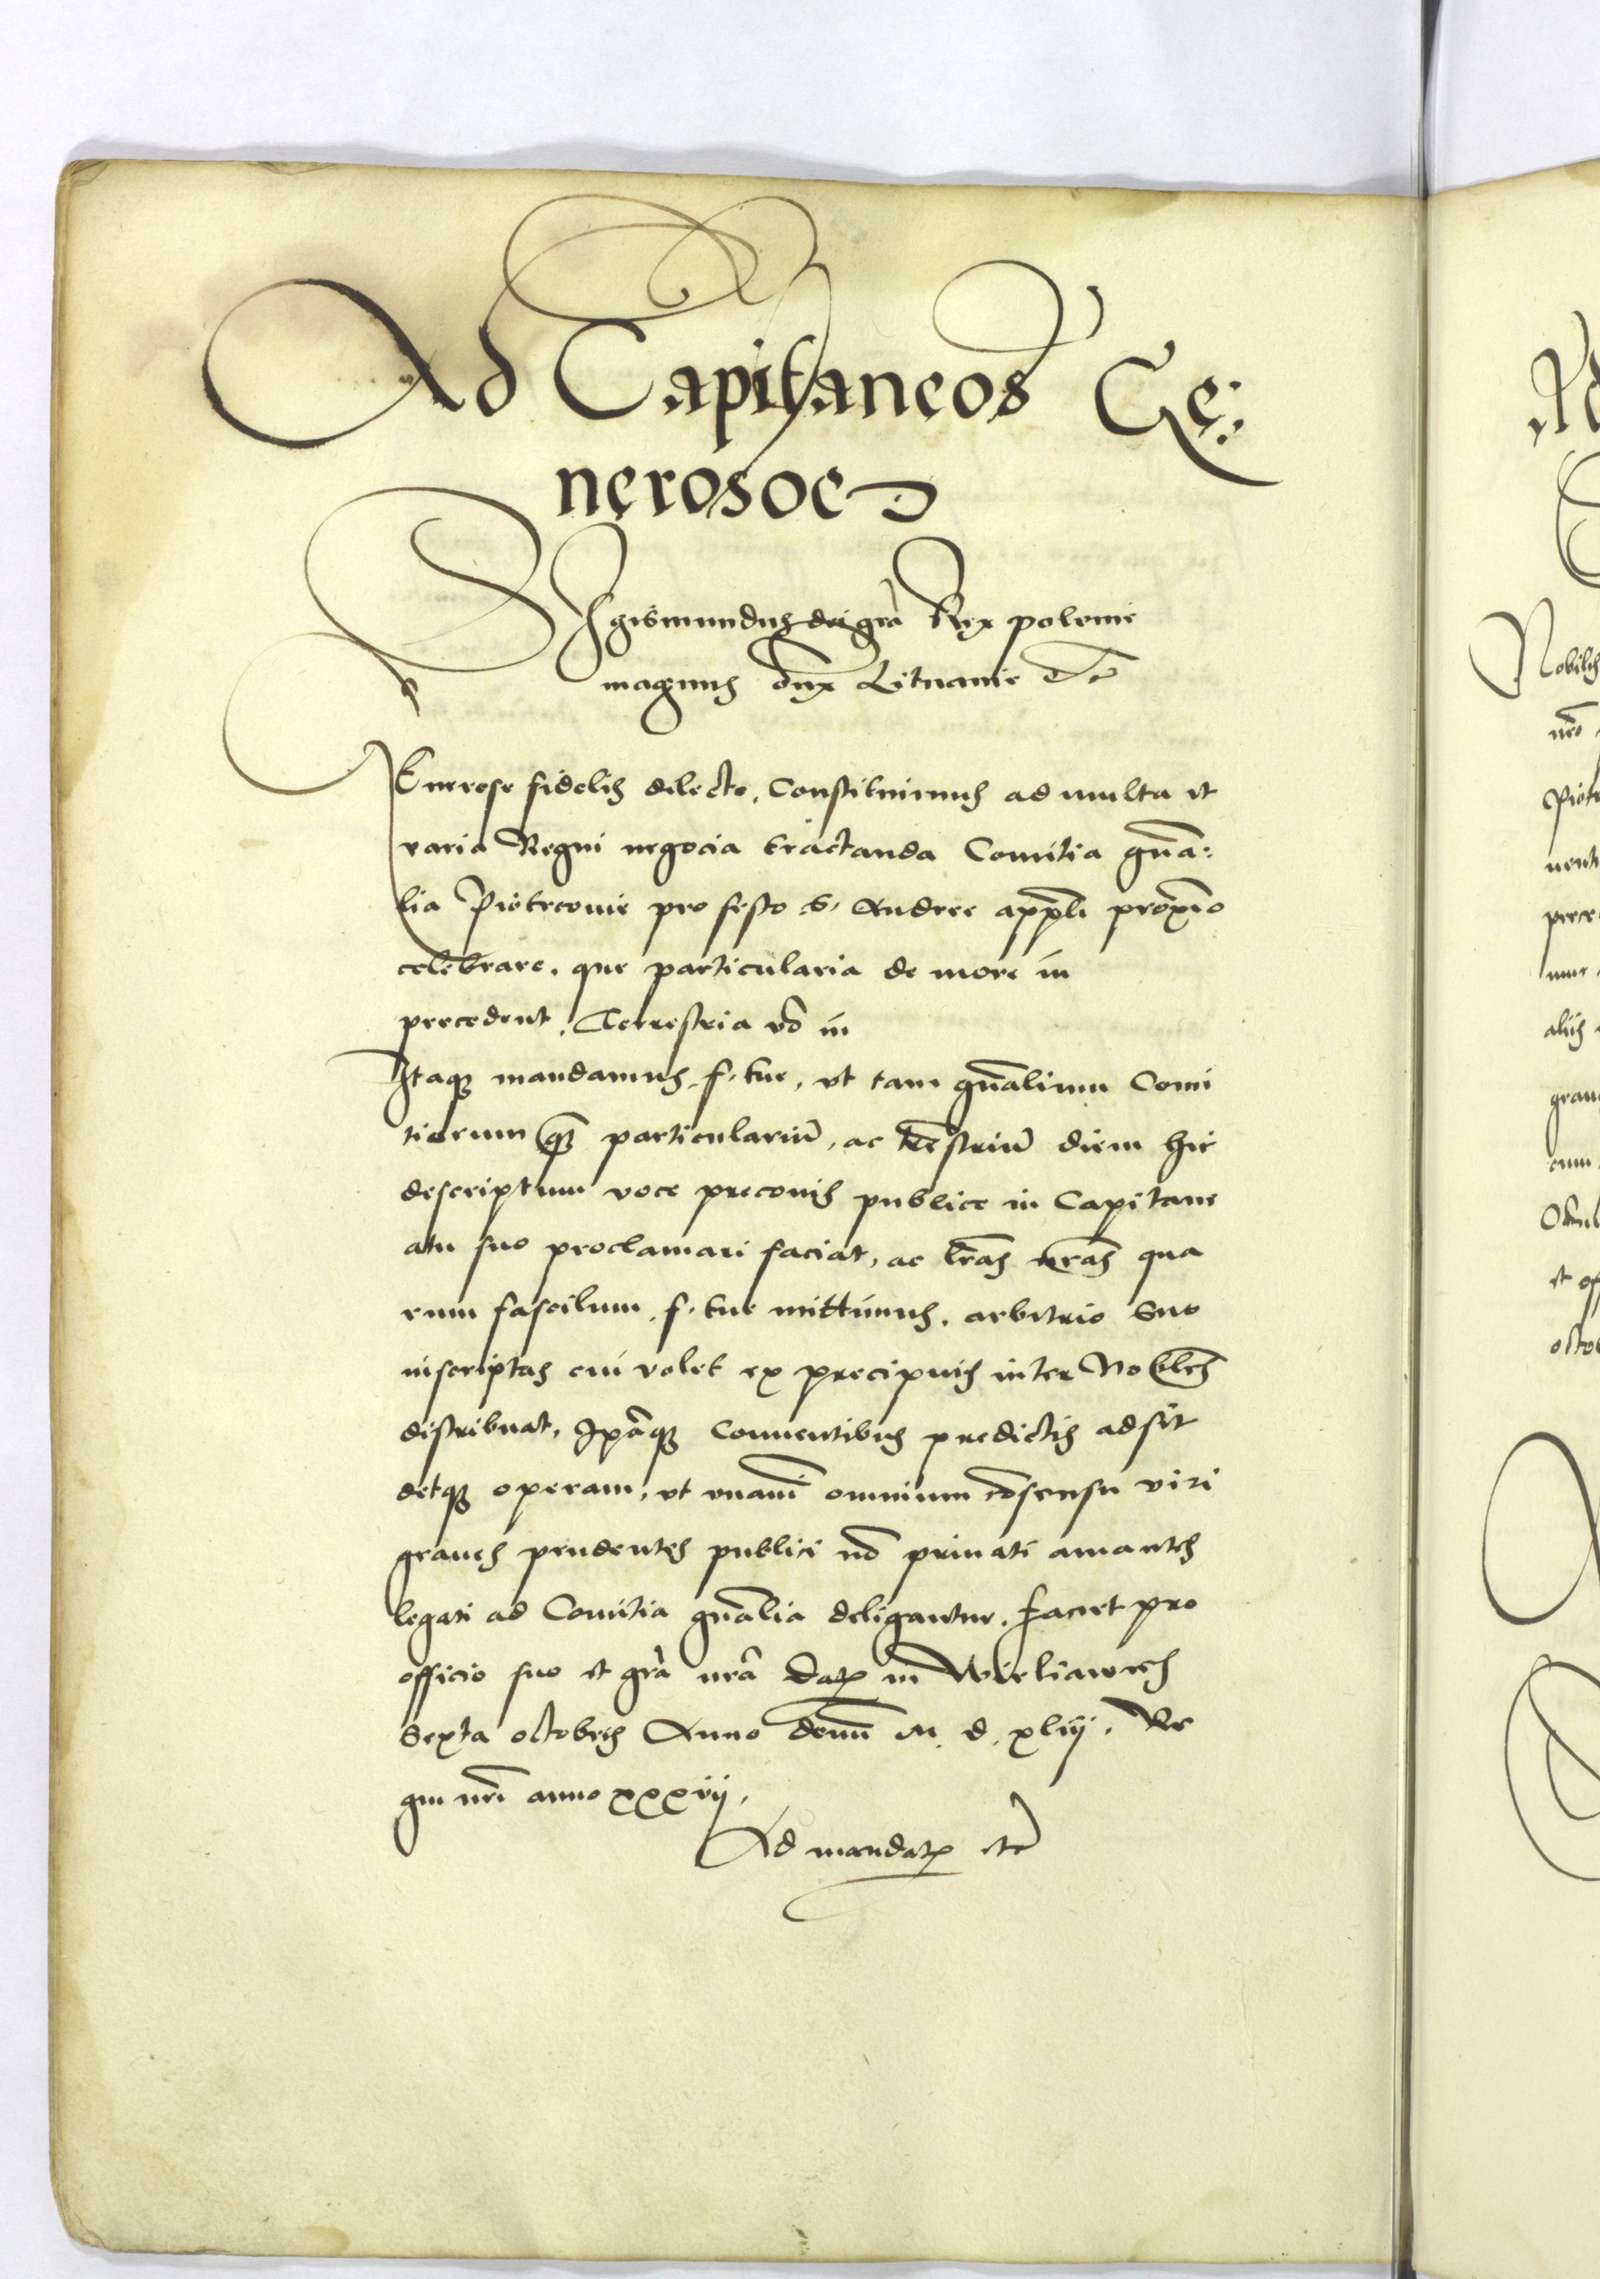 Ad Capitaneos Ge:
nerosos
Sigismundus dei gra Rex polonie
magnus dux Lituanie etc
Generose fidelis dilecte, Constituimus ad multa et
varia Regni negocia tractanda Comitia gna:
lia Piotrcovie pro festo S. Andree appli proximo
celebrare, que particularia de more in
precedent, Terrestria vo in
Itaque mandamus f. tue, ut tam gnalium Comi
tiorum quam particulariu, ac trestriu diem hic
descriptum voce preconis publice in Capitane
atu suo proclamari faciat, ac lras nras qua
rum fascilum f. tue mittimus, arbitrio suo
inscriptas cui volet ex precipuis inter Nobiles
distribuat, Ipaque Conventibus predictis adsit
detque operam, ut unanimi omnium consensu viri
graves prudentes publici no privati amantes
legati ad Comitia gnalia deligantur. faciet pro
officio suo et gra nra Datum in Wieliawies
Sexta octobris Anno domi M. d. xliij. Re
gni nri anno xxxvij.
Ad mandatum etc
Nobilis
nro
Piotr
venti
prece
aliis
grav
cum
et of
octob